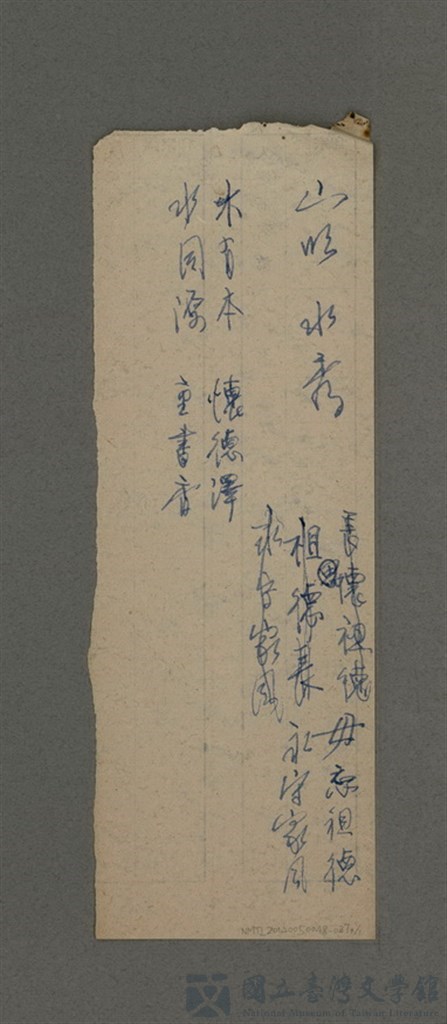 山明水秀
長懷祖德 毋忘祖德
祖德 永守家風
永守家風
木有本 懷德澤
水同源 重書香
國立臺灣文學館
National Museum of Taiwan Literature